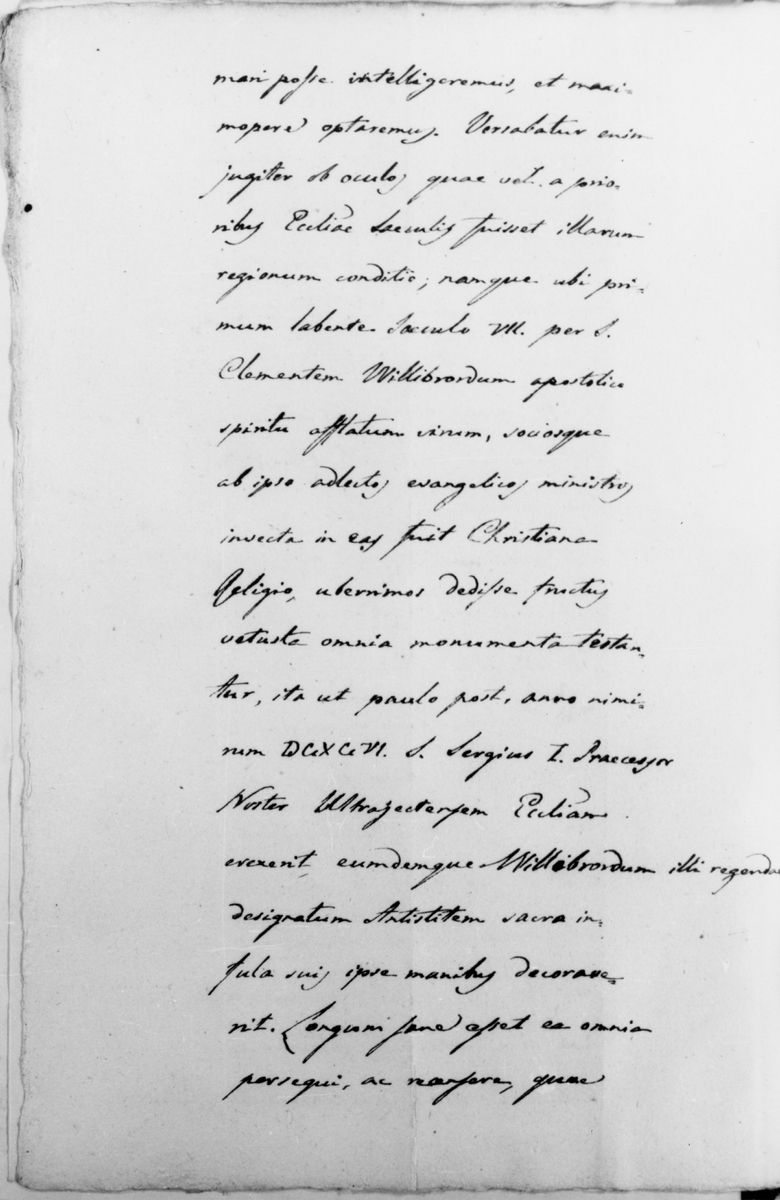 mari posse intelligeremus, et maxi-
mopere optaremus. Versabatur enim
jugiter ob oculos quae vel a prio-
ribus Eccliae saeculis fuisset illarum
regionum conditio; namque ubi pri-
mum labente saeculo VII. per S.
Clementem Willibrordum apostolico
spiritu afflatum virum, sociosque
ab ipso adlectos evangelicos ministros
invecta in eas fuit Christiana
Religio, uberrimos dedisse fructus
vetusta omnia monumenta testan-
tur, ita ut paulo post, anno nimi-
rum DCXCVI. S. Sergius I. Praecessor
Noster Ultrajectensem Eccliam
erexerit, eumdemque Willibrordum illi regendae
designatum Antistitem sacra in-
fula suis ipse manibus decorave-
rit. Longum sane esset ea omnia
persequi, ac recensere, quae